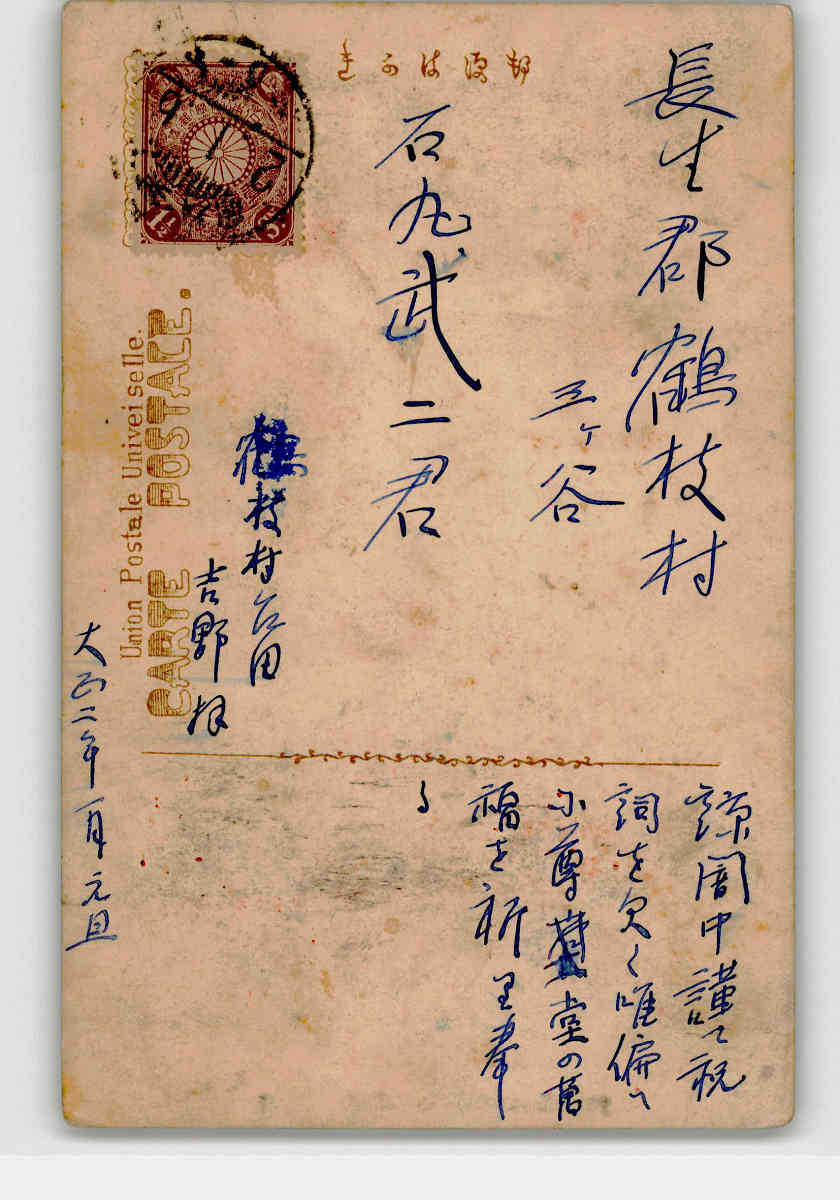 郵便はかき
長生郡鶴枝村
三ヶ谷
石丸武二君
鶴枝村台田
吉野拝
大正二年一月元旦
諒闇中謹て祝
詞を欠く唯偏
に尊堂の萬
福を祈里奉
る
Union Postale Univeiselle.
CARTE POSTALE.
1½ Sn.